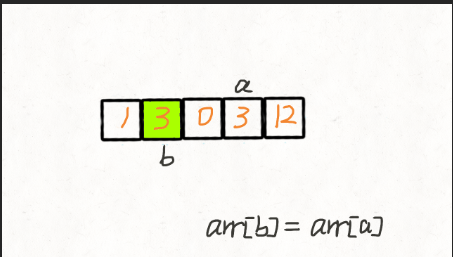 a
1 3 0 3 12
b
arr[b] = arr[a]